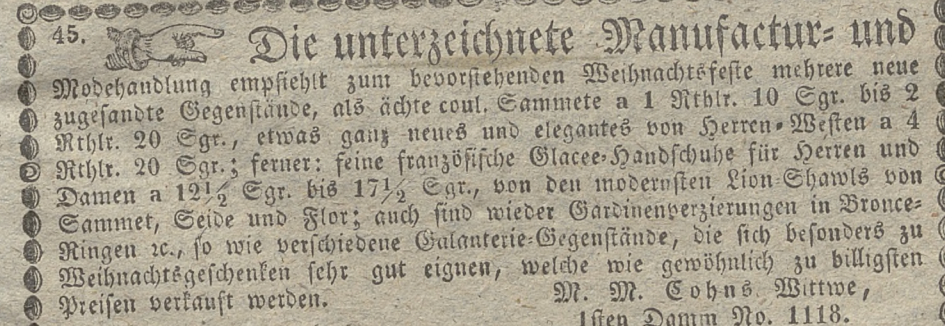 45. Die unterzeichnete Manufactur- und
Modehandlung empfiehlt zum bevorstehenden Weihnachtsfeste mehrere neue
zugesandte Gegenstände, als ächte coul. Sammete a 1 Rthlr. 10 Sgr. bis 2
Rthlr. 20 Sgr., etwas ganz neues und elegantes von Herren-Westen a 4
Rthlr. 20 Sgr.; ferner: feine französische Glacee-Handschuhe für Herren und
Damen a 12½ Sgr. bis 17½ Sgr., von den modernsten Lion-Shawls von
Sammet, Seide und Flor; auch sind wieder Gardinenverzierungen in Bronce-
Ringen ꝛc., so wie verschiedene Galanterie-Gegenstände, die sich besonders zu
Weihnachtsgeschenken sehr gut eignen, welche wie gewöhnlich zu billigsten
Preisen verkauft werden.
M. M. Cohns Wittwe,
1sten Damm No. 1118.